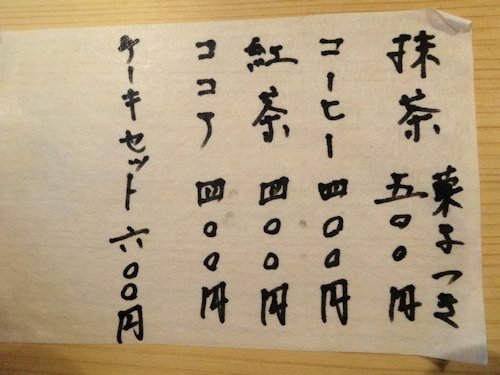 抹茶 五〇〇円
菓子つき
コーヒー 四〇〇円
紅茶 四〇〇円
ココア 四〇〇円
ケーキセット 六〇〇円